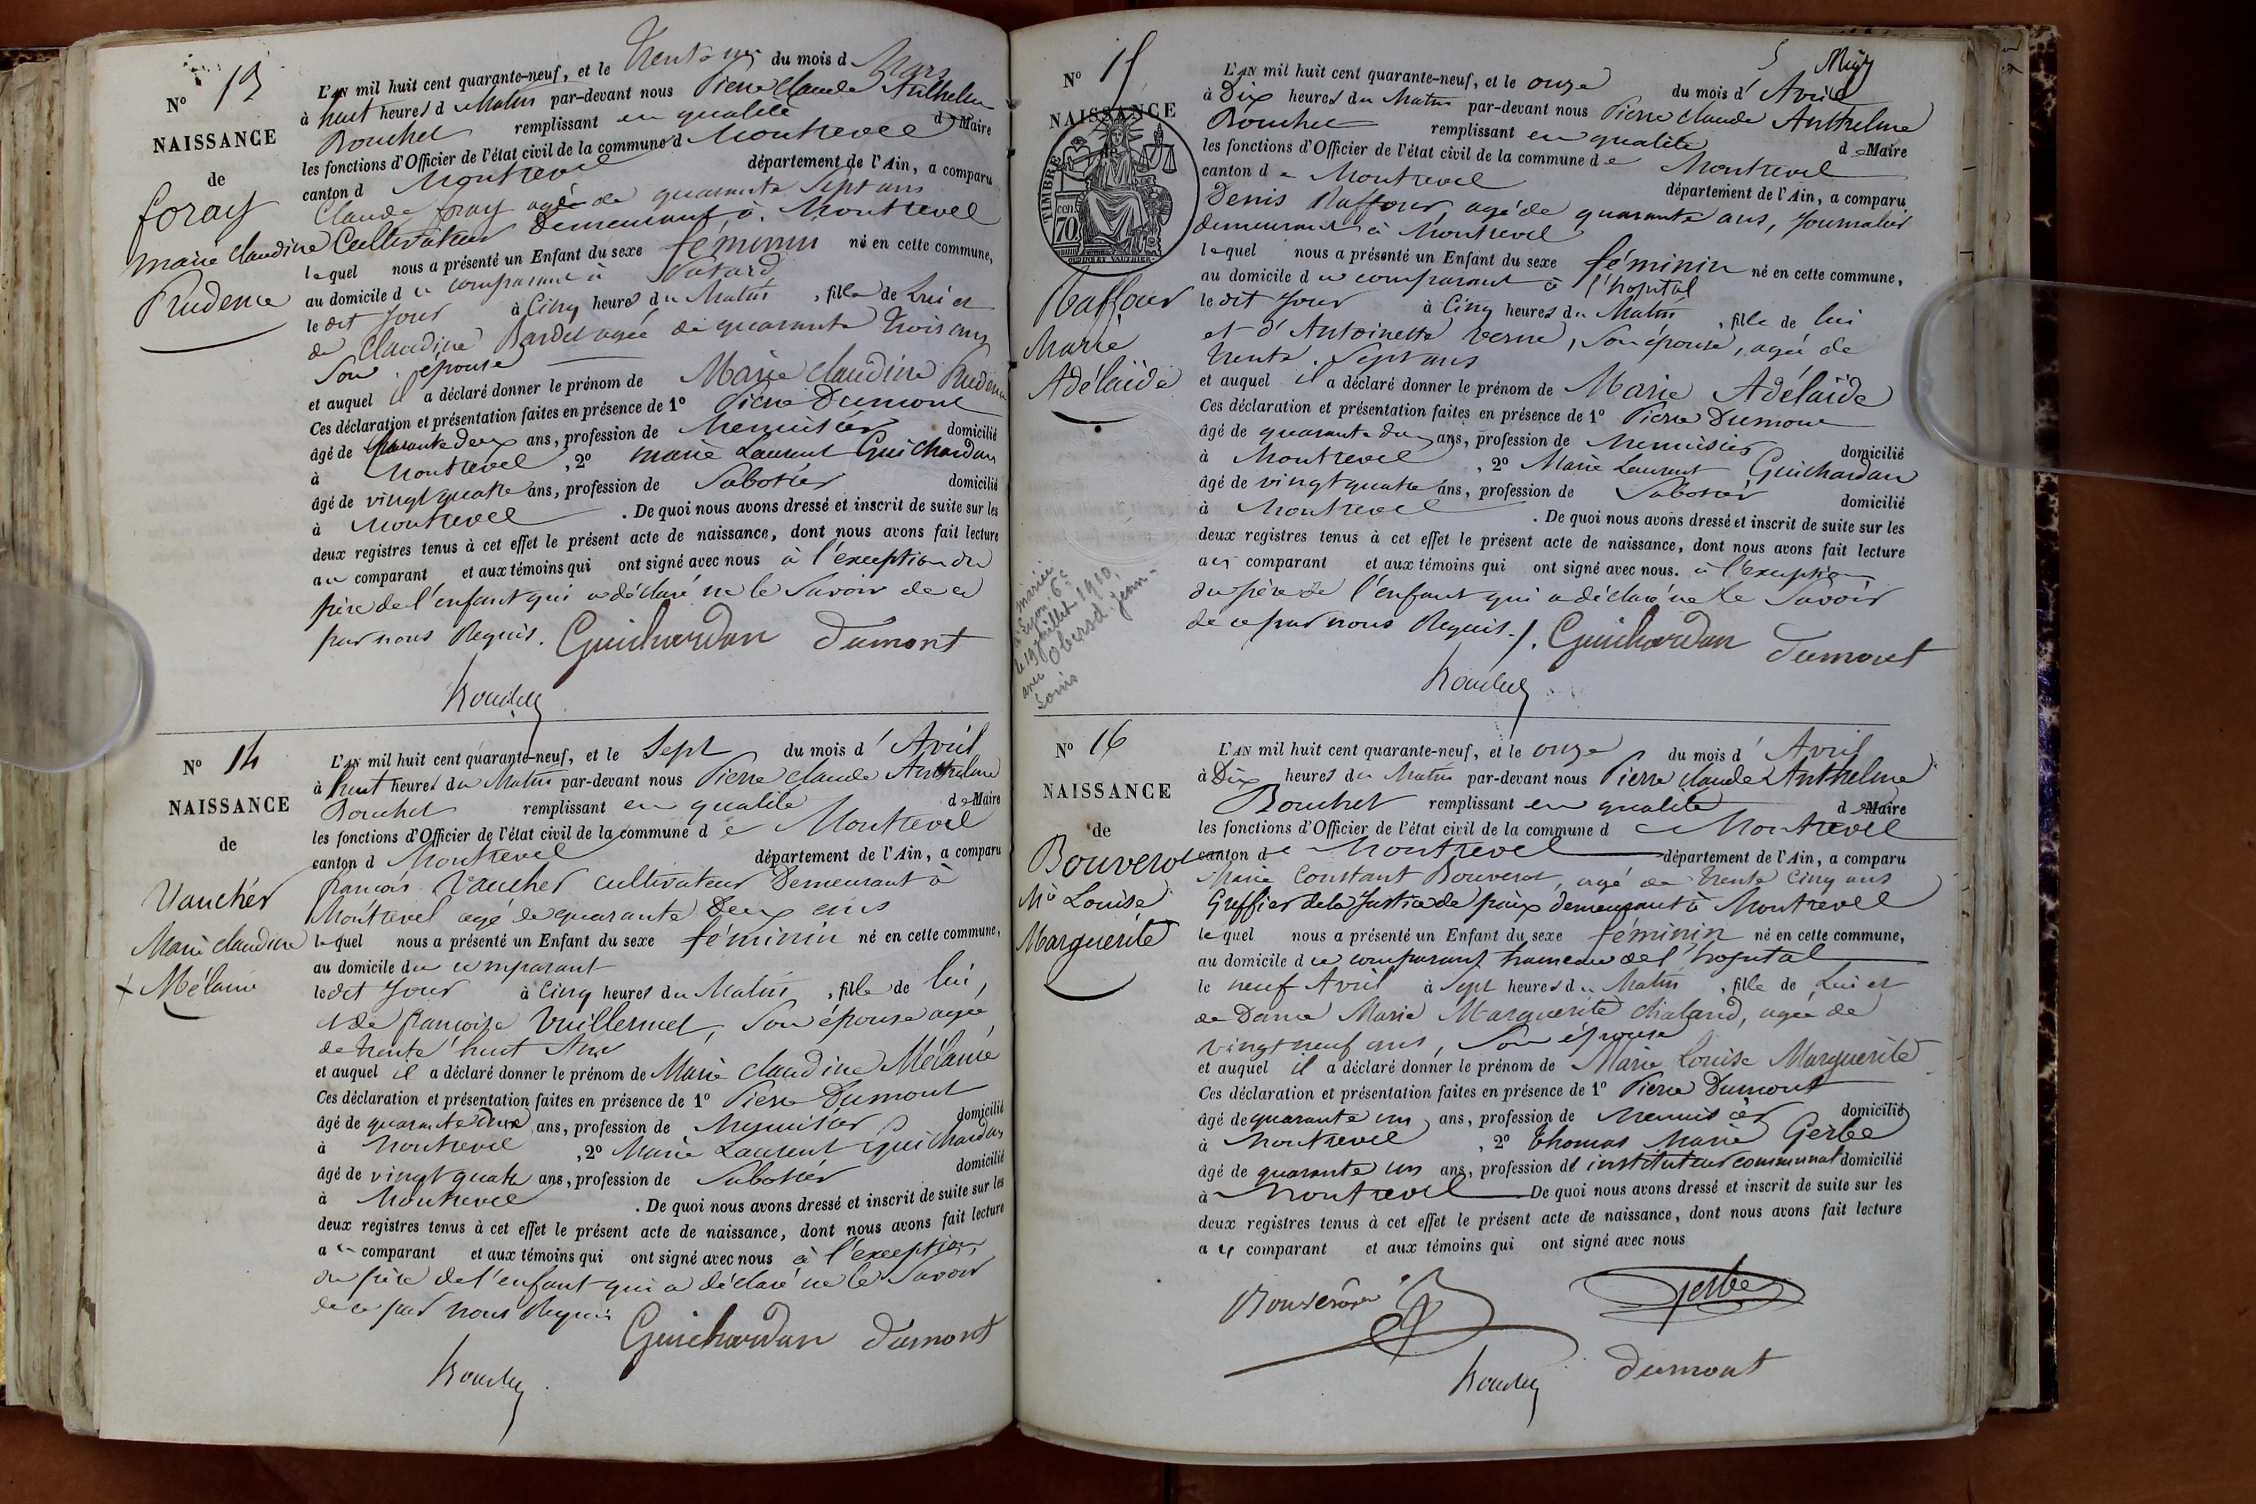 N° 13
NAISSANCE
de
foray
marie claudine
Prudence
L'AN mil huit cent quarante-neuf, et le trente un du mois d Mars
à huit heures du Matin par-devant nous Pierre Claude Anthelme
Bouchet remplissant en qualité de Maire
les fonctions d'Officier de l'état civil de la commune d Montrevel
canton d Montrevel département de l'Ain, a comparu
Claude foray agé de quarante Sept ans
Cultivateur Demeurant à Montrevel
lequel nous a présenté un Enfant du sexe féminin né en cette commune,
au domicile du comparant à
le dit Jour à Cinq heures du Matin, fille de Lui et
de Claudine Bardet agée de quarante trois ans
Son épouse
et auquel il a déclaré donner le prénom de Marie Claudine Prudence
Ces déclaration et présentation faites en présence de 1° Pierre Dumont
âgé de quarante deux ans, profession de Menuisier domicilié
à Montrevel, 2° marie Laurent Guichardan
âgé de vingt quatre ans, profession de Sabotier domicilié
à Montrevel. De quoi nous avons dressé et inscrit de suite sur les
deux registres tenus à cet effet le présent acte de naissance, dont nous avons fait lecture
au comparant et aux témoins qui ont signé avec nous à l'exception du
père de l'enfant qui a déclaré ne le Savoir de ce
par nous Requis. Guichardan Dumont
Bouchet
N° 14
NAISSANCE
de
Vaucher
Marie claudine
Mélanie
L'AN mil huit cent quarante-neuf, et le Sept du mois d'Avril
à huit heures du Matin par-devant nous Pierre Claude Anthelme
Bouchet remplissant en qualité de Maire
les fonctions d'Officier de l'état civil de la commune de Montrevel
canton d Montrevel département de l'Ain, a comparu
françois Vaucher cultivateur Demeurant à
Montrevel agé de quarante Deux ans
lequel nous a présenté un Enfant du sexe féminin né en cette commune,
au domicile du comparant
le dit Jour à Cinq heures du Matin, fille de lui,
et de françoise Vuillermet, Son épouse agée
de trente huit Ans
et auquel il a déclaré donner le prénom de Marie Claudine Mélanie
Ces déclaration et présentation faites en présence de 1° Pierre Dumont
âgé de quarante deux ans, profession de Menuisier domicilié
à Montrevel, 2° Marie Laurent Guichardan
âgé de vingt quatre ans, profession de Sabotier domicilié
à Montrevel. De quoi nous avons dressé et inscrit de suite sur les
deux registres tenus à cet effet le présent acte de naissance, dont nous avons fait lecture
au comparant et aux témoins qui ont signé avec nous à l'exception
du père de l'enfant qui a déclaré ne le Savoir
de ce par nous Requis Guichardan Dumont
Bouchet
N° 15
NAISSANCE
TIMBRE
70
Raffour
Marie
Adélaïde
mariée
à Lyon 6e
le 19 juillet 1910
avec Obersd. Jean-
Louis
L'AN mil huit cent quarante-neuf, et le onze du mois d'Avril
à Dix heures du Matin par-devant nous Pierre Claude Anthelme
Bouchet remplissant en qualité de Maire
les fonctions d'Officier de l'état civil de la commune de Montrevel
canton de Montrevel département de l'Ain, a comparu
Denis Raffour, agé de quarante ans, Journalier
demeurant à Montrevel
lequel nous a présenté un Enfant du sexe féminin né en cette commune,
au domicile du comparant à l'hopital
le dit Jour à Cinq heures du Matin, fille de lui
et d'Antoinette Verne, Son épouse, agée de
trente Sept ans
et auquel il a déclaré donner le prénom de Marie Adélaïde
Ces déclaration et présentation faites en présence de 1° Pierre Dumont
âgé de quarante deux ans, profession de Menuisier domicilié
à Montrevel, 2° Marie Laurent Guichardan
âgé de vingt quatre ans, profession de Sabotier domicilié
à Montrevel. De quoi nous avons dressé et inscrit de suite sur les
deux registres tenus à cet effet le présent acte de naissance, dont nous avons fait lecture
au comparant et aux témoins qui ont signé avec nous. à l'exception
du père de l'enfant qui a déclaré ne le Savoir
de ce par nous Requis. Guichardan Dumont
Bouchet
N° 16
NAISSANCE
de
Bouverot
Mie Louise
Marguerite
L'AN mil huit cent quarante-neuf, et le onze du mois d'Avril
à Dix heures du Matin par-devant nous Pierre Claude Anthelme
Bouchet remplissant en qualité de Maire
les fonctions d'Officier de l'état civil de la commune de Montrevel
canton de Montrevel département de l'Ain, a comparu
Marie Constant Bouverot, agé de trente Cinq ans
Greffier de la Justice de paix demeurant à Montrevel
lequel nous a présenté un Enfant du sexe féminin né en cette commune,
au domicile du comparant hameau de l'hopital
le neuf Avril à Sept heures du Matin, fille de Lui et
de Dame Marie Marguerite Chaland, agée de
vingt neuf ans, Son épouse
et auquel il a déclaré donner le prénom de Marie Louise Marguerite
Ces déclaration et présentation faites en présence de 1° Pierre Dumont
âgé de quarante un ans, profession de Menuisier domicilié
à Montrevel, 2° Thomas Marie Gerbe
âgé de quarante un ans, profession d'instituteur communal domicilié
à Montrevel De quoi nous avons dressé et inscrit de suite sur les
deux registres tenus à cet effet le présent acte de naissance, dont nous avons fait lecture
au comparant et aux témoins qui ont signé avec nous
Bouverot Gerbe
Bouchet Dumont